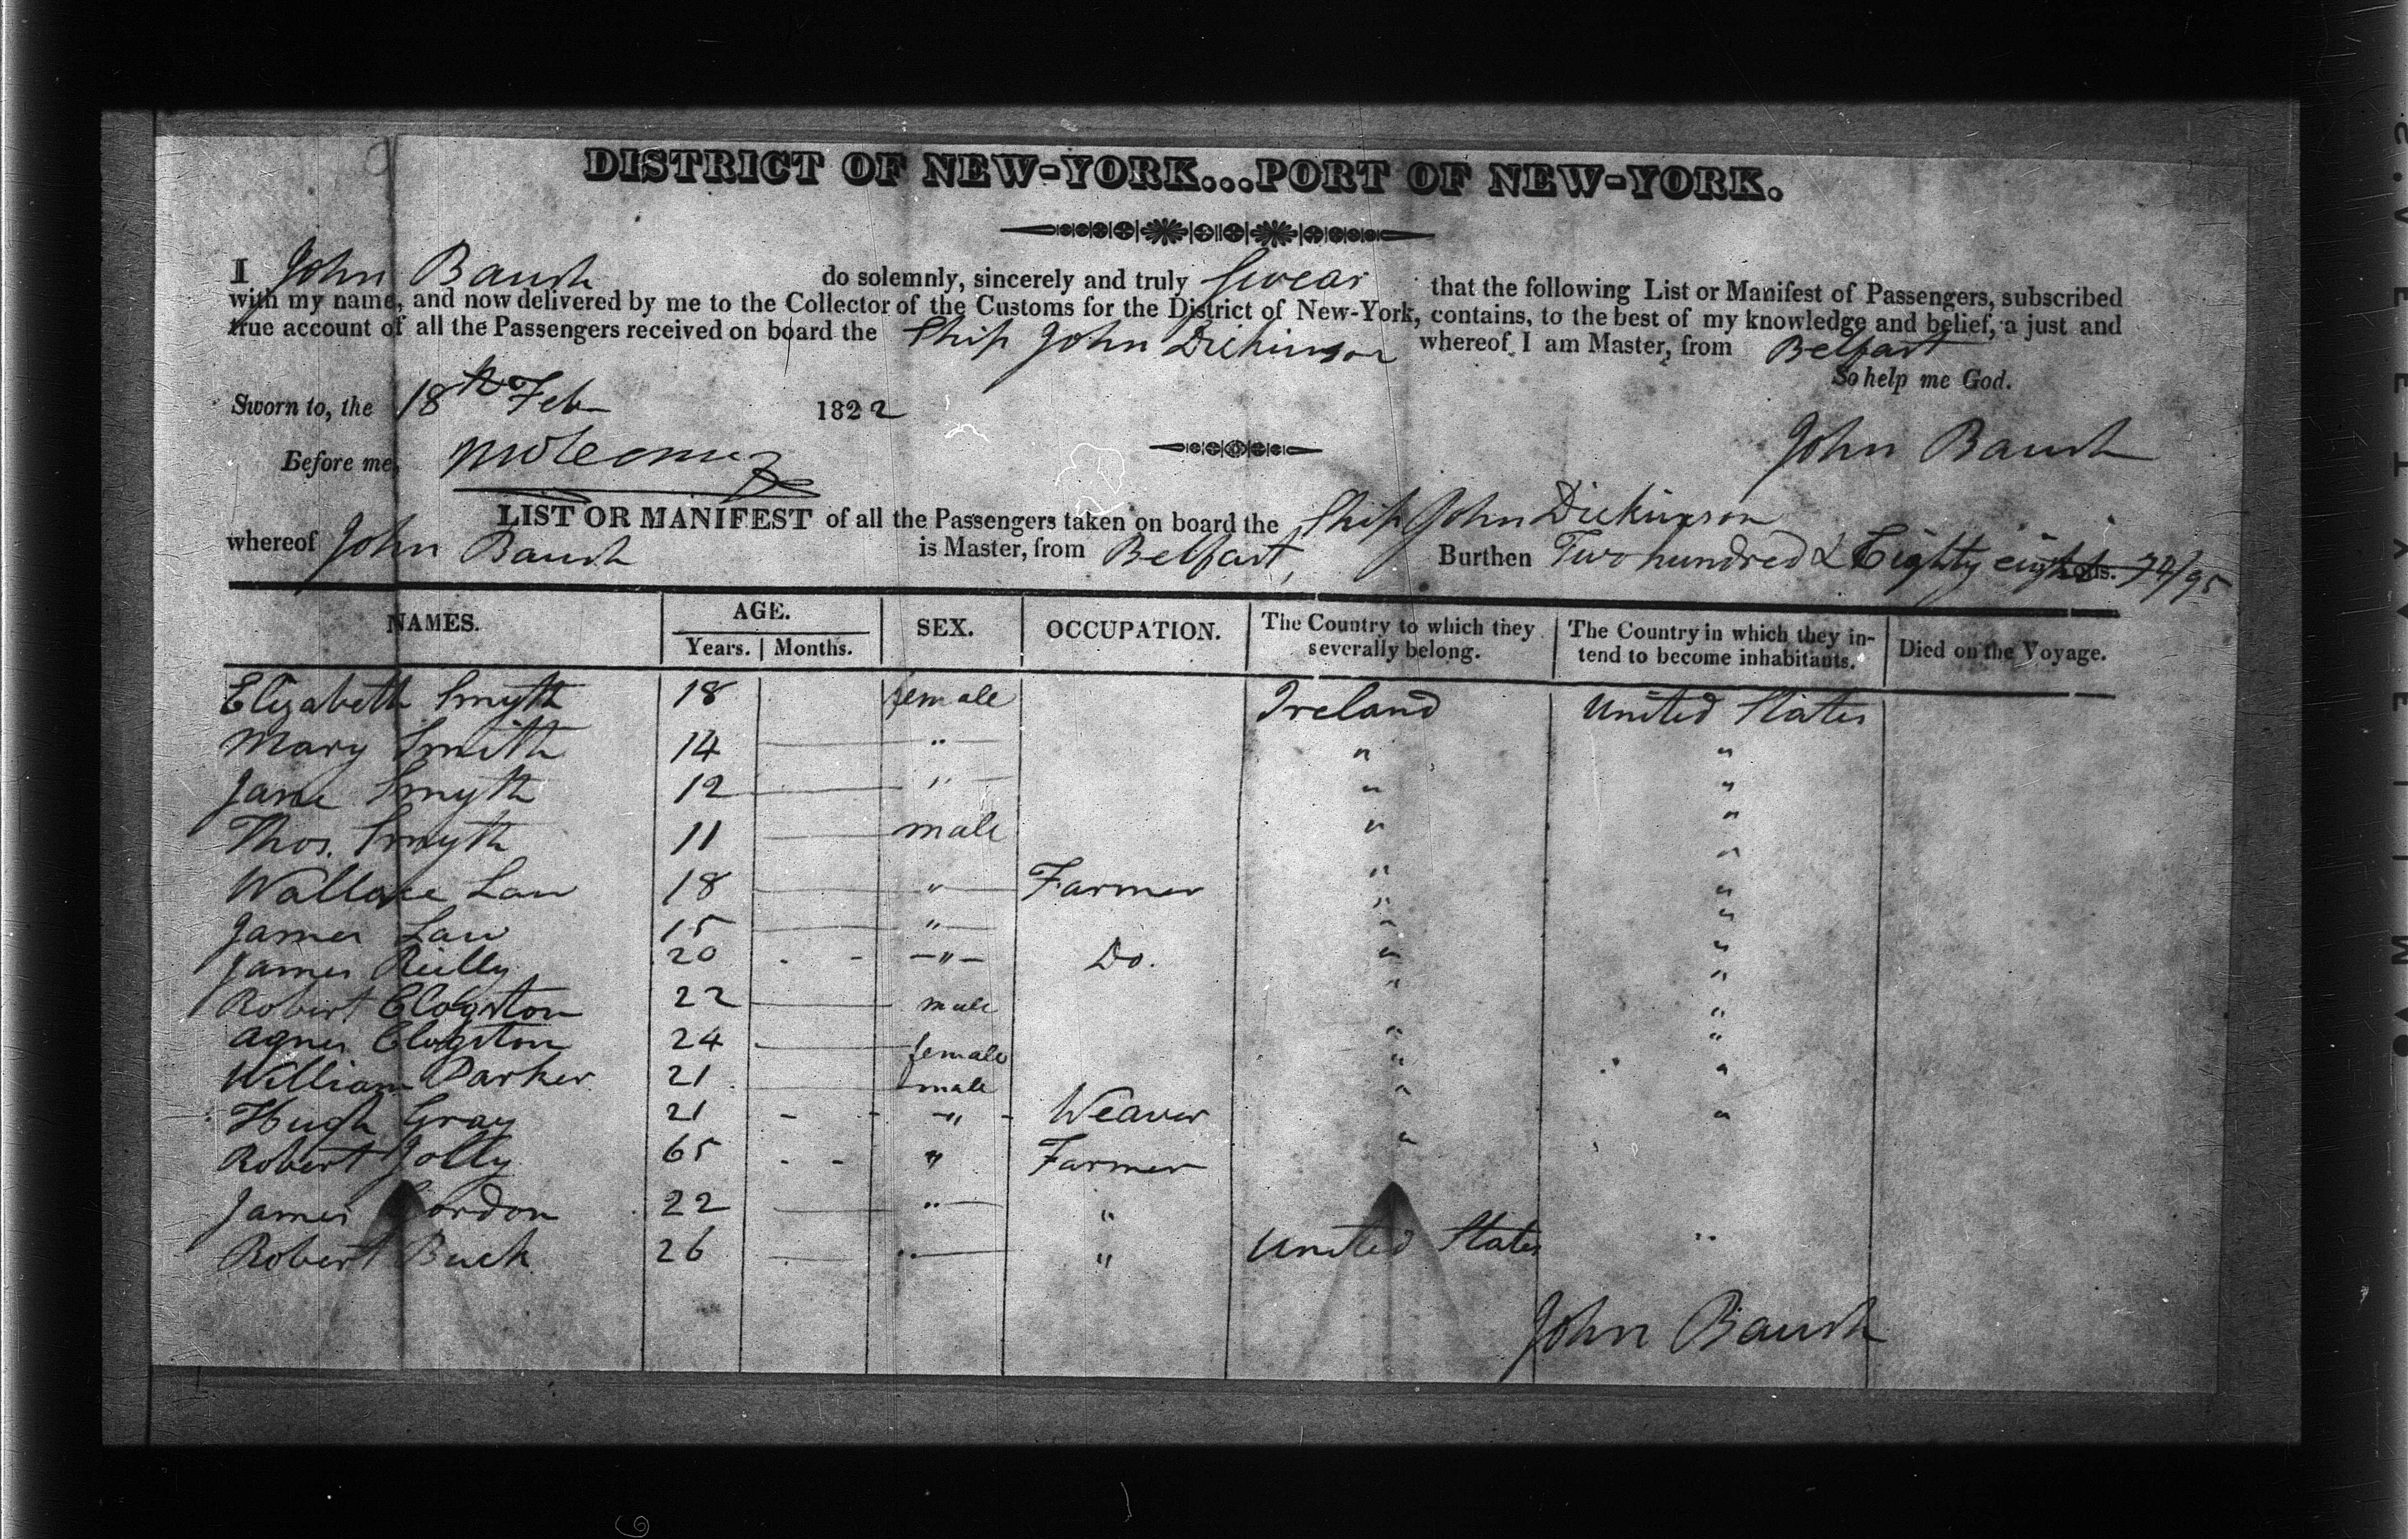 DISTRICT OF NEW-YORK...PORT OF NEW-YORK.
I John Baush do solemnly, sincerely and truly Swear that the following List or Manifest of Passengers, subscribed
with my name, and now delivered by me to the Collector of the Customs for the District of New-York, contains, to the best of my knowledge and belief, a just and
true account of all the Passengers received on board the Ship John Dickinson whereof I am Master, from Belfast
So help me God.
Sworn to, the 18th Feb 1822
John Baush
Before me,
LIST OR MANIFEST of all the Passengers taken on board the Ship John Dickinson
whereof John Baush is Master, from Belfast, Burthen Two hundred & Eighty eight tons. 74/95
NAMES. AGE. SEX. OCCUPATION. The Country to which they severally belong. The Country in which they intend to become inhabitants. Died on the Voyage.
Years. Months.
Elizabeth Smyth 18 female Ireland United States
Mary Smith 14 " " "
Jane Smyth 12 " " "
Thos. Smyth 11 male " "
Wallace Law 18 " Farmer " "
James Law 15 " " "
James Reilly 20 " Do. " "
Robert Clogston 22 male " "
Agnes Clogston 24 female " "
William Parker 21 male " "
Hugh Gray 21 " Weaver " "
Robert Jolly 65 " Farmer " "
James Gordon 22 " "
Robert Buck 26 " " United States "
John Baush